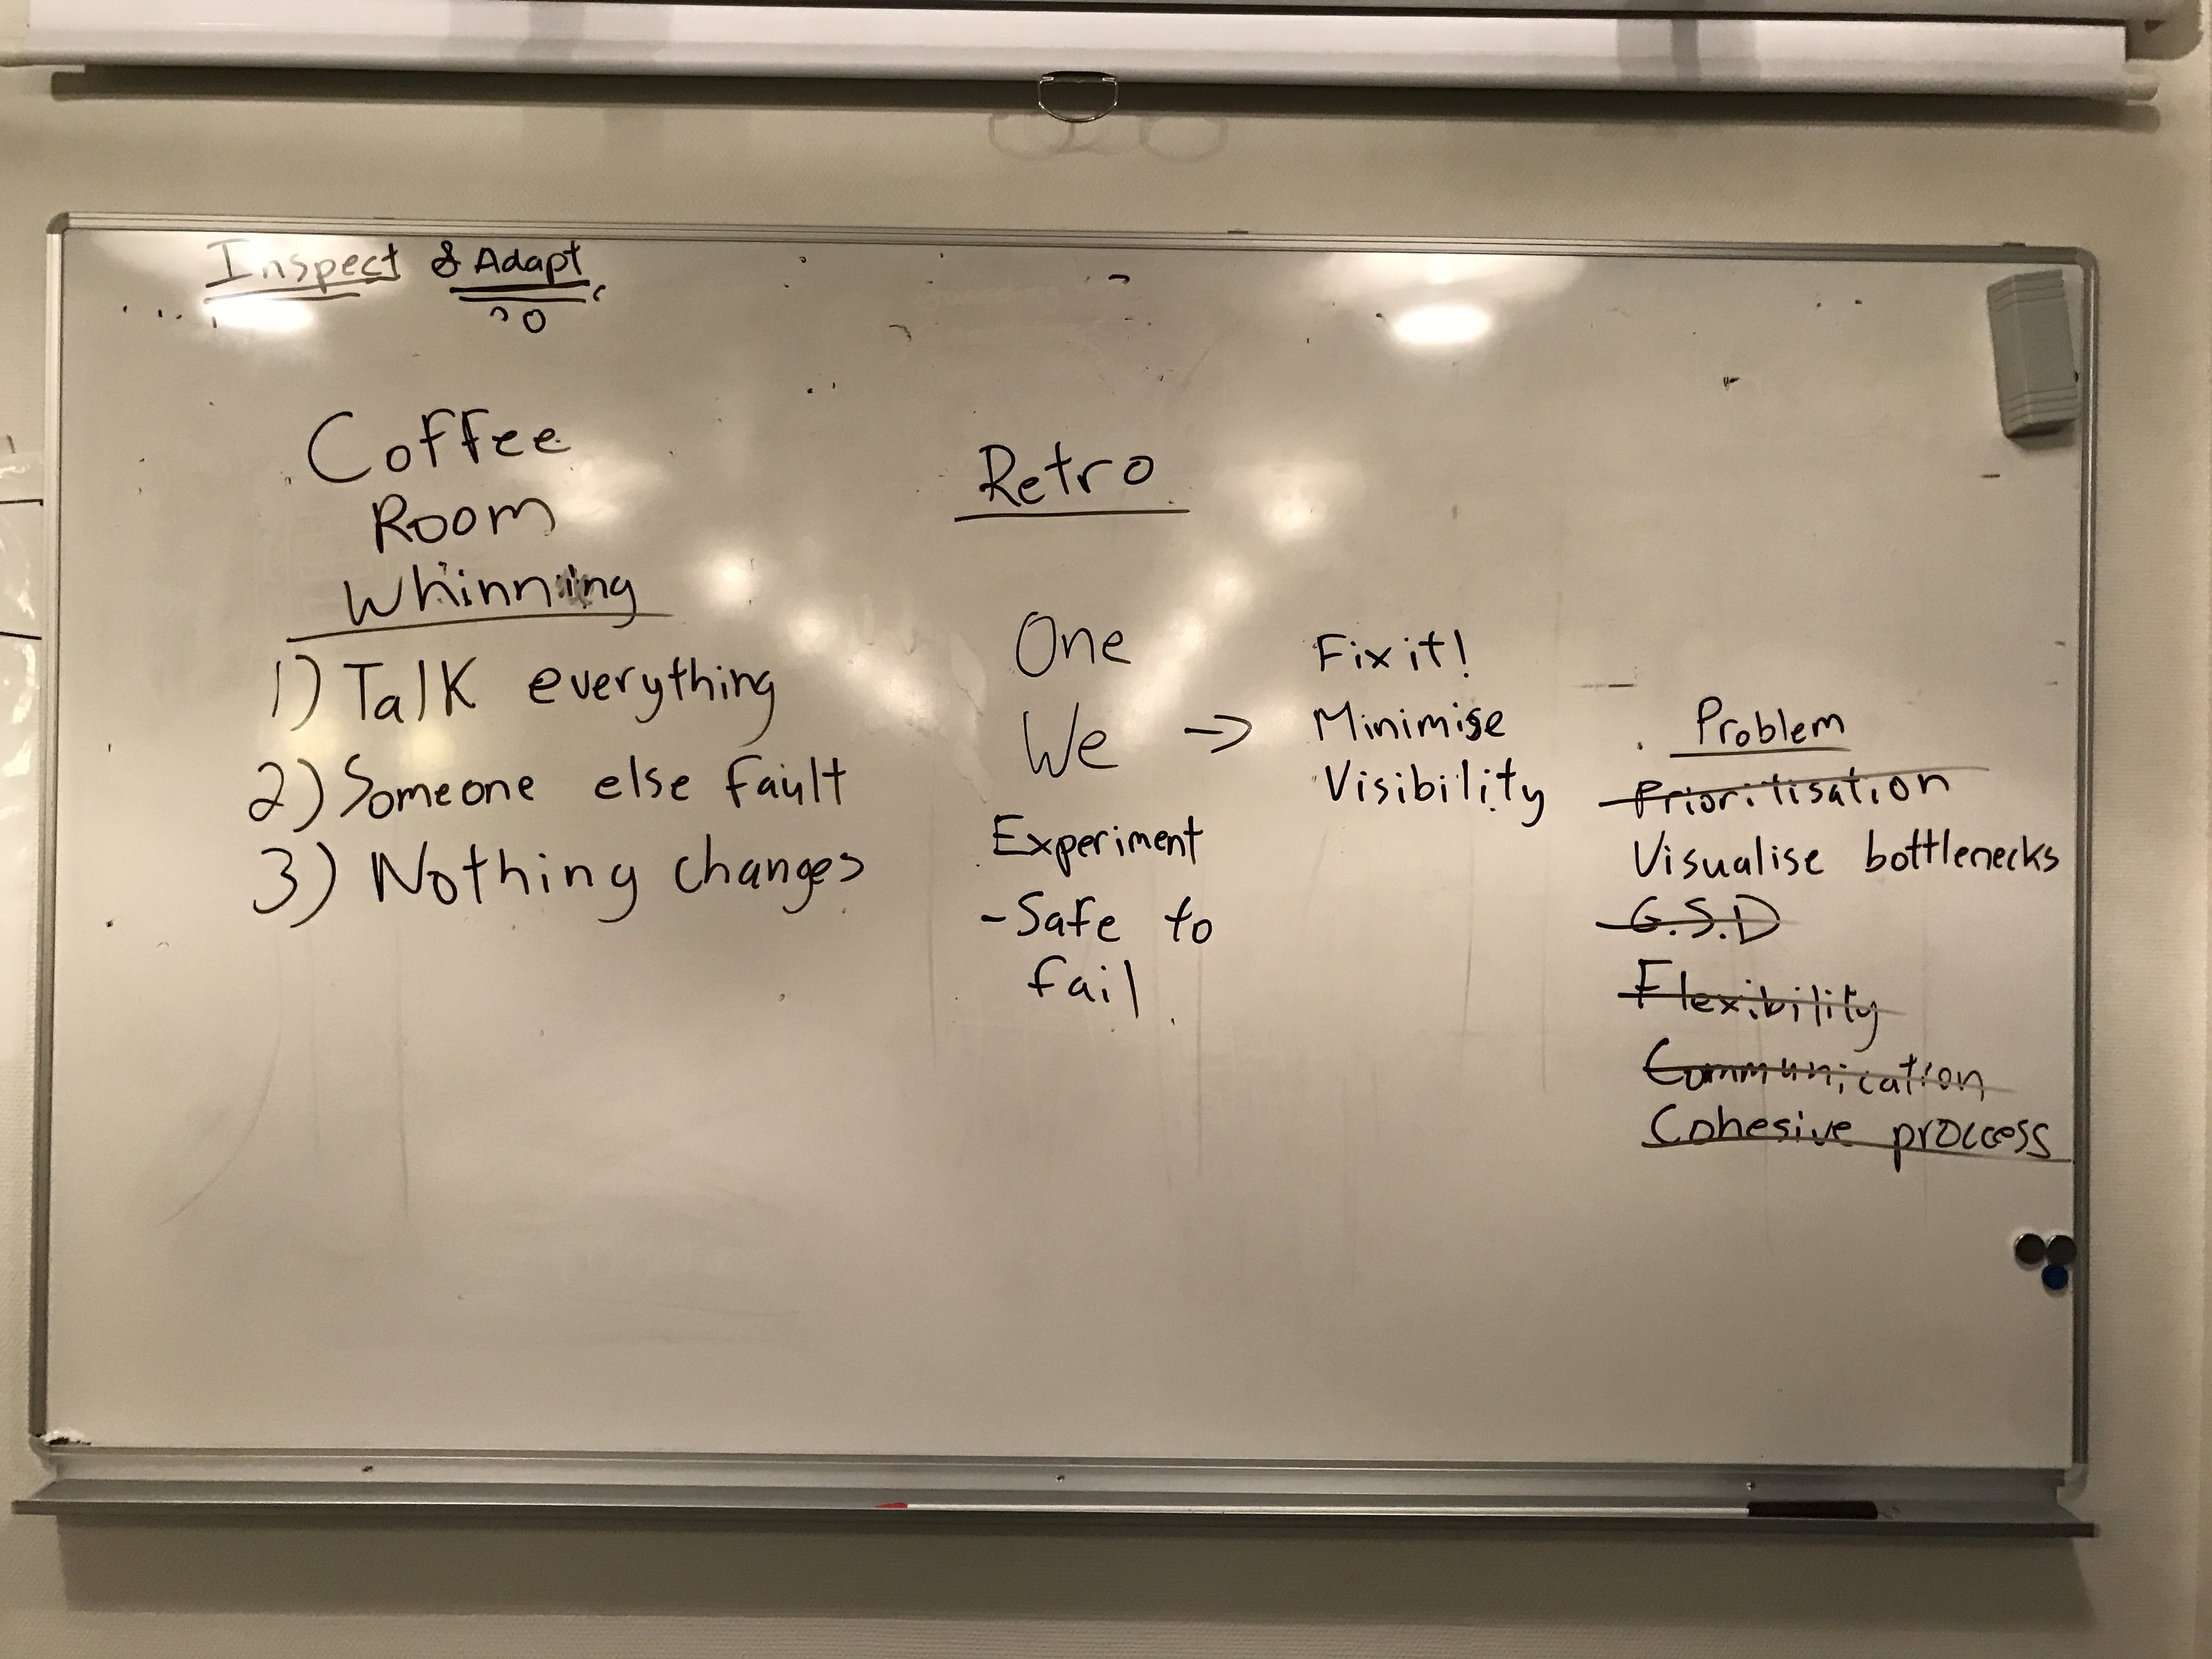 Inspect & Adapt
Coffee
Room
Whinning
1) Talk everything
2) Someone else fault
3) Nothing changes
Retro
One
We →
Experiment
- Safe to
fail
Fix it!
Minimise
Visibility
Problem
Prioritisation
Visualise bottlenecks
G.S.D
Flexibility
Communication
Cohesive proccess